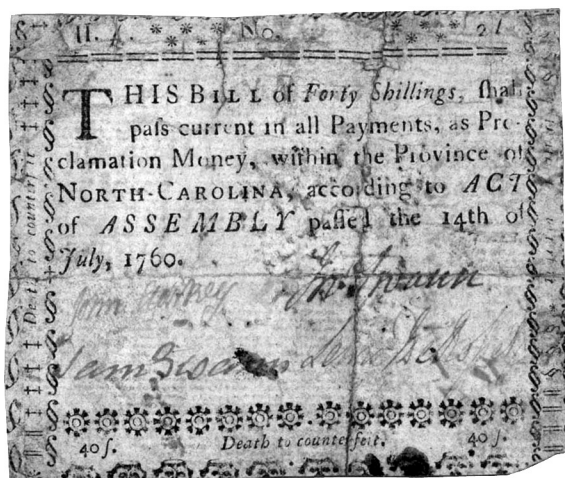 No.
THIS BILL of Forty Shillings, ſhall
paſs current in all Payments, as Pro-
clamation Money, within the Province of
NORTH-CAROLINA, according to ACT
of ASSEMBLY paſſed the 14th of
July, 1760.
John Starkey
Jno Swann
Sam Swann Lewis
40ſ. Death to counterfeit. 40ſ.
Death to counterfeit